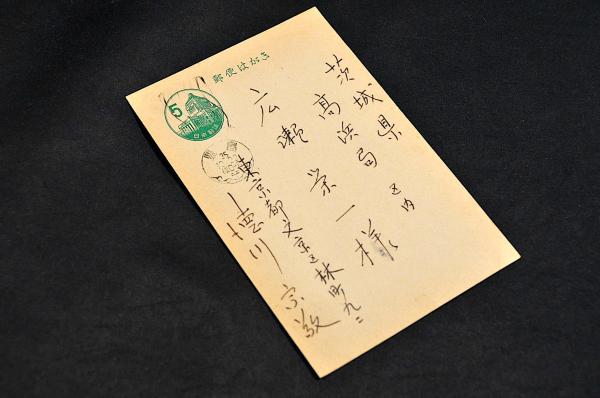 郵便はがき
5
日本郵便
茨城県
高浜局区内
広瀬栄一様
35
東京都文京区林町九二
徳川宗敬